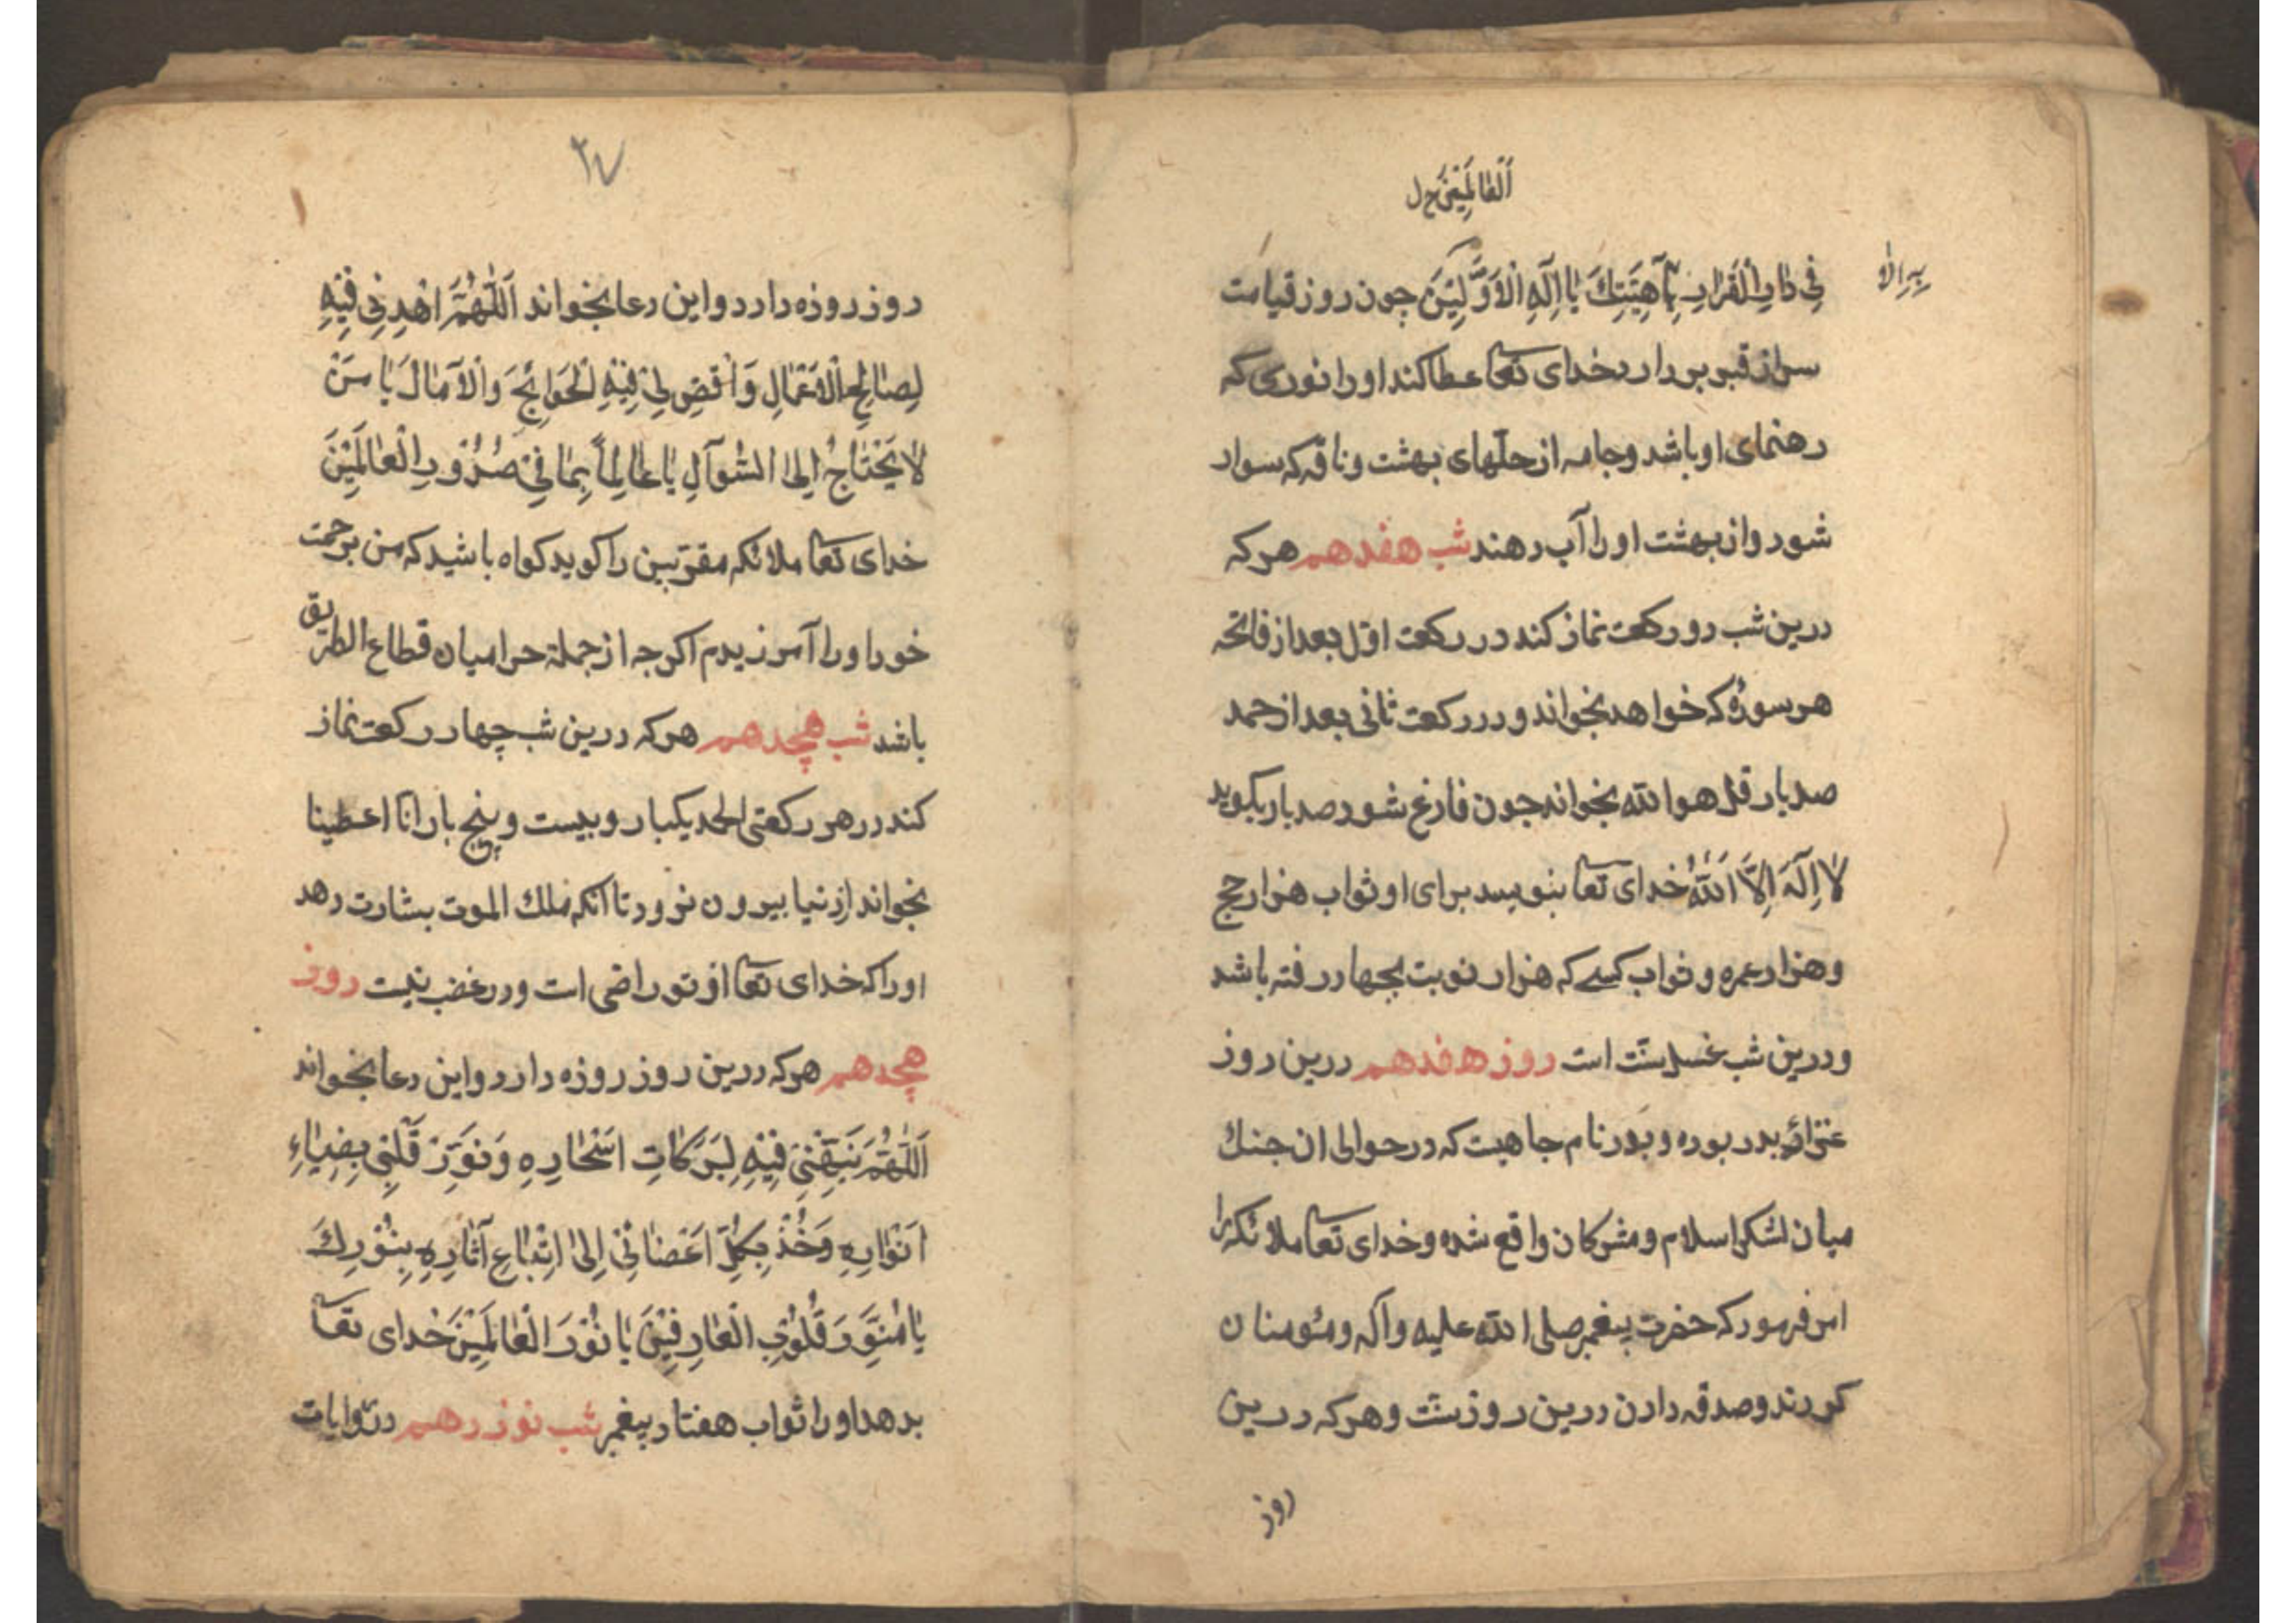 اَلْعٰالَمِيْنَ خ ل
فِي دٰارِ الْقَرٰارِ بِآهِيَّتِكَ يٰا اِلٰهَ الْاَوَّلِيْنَ چون روز قيامت
سر از قبر بردارد خداى تعا عطا كند او را نورى كه
رهنماى او باشد و جامه از حلّهاى بهشت و ناقه كه سوار
شود و از بهشت او را آب دهند شب هفدهم هركه
درين شب دو ركعت نماز كند در ركعت اوّل بعد از فاتحه
هر سورهٔ كه خواهد بخواند و در ركعت ثانى بعد از حمد
صد بار قل هو الله بخواند جون فارغ شود صد بار بكويد
لٰا اِلٰهَ اِلَّا اللّٰهُ خداى تعا بنويسد براى او ثواب هزار حج
و هزار عمره و ثواب كسے كه هزار نوبت بجهاد رفته باشد
و درين شب غسل سنّت است روز هفدهم درين روز
غزاى بدر بوده و بدر نام جاهيت كه در حوالى ان جنك
ميان لشكر اسلام و مشركان واقع شده و خداى تعا ملائكه را
امر فرمود كه حضرت پيغمبر صلى الله عليه و آله و مئومنان
كردند و صدقه دادن درين روز سنّت و هركه درين
روز
٢٧
روز روزه دارد و اين دعا بخواند اَللّٰهُمَّ اهْدِنِي فِيْهِ
لِصٰالِحِ الْاَعْمٰالِ وَاقْضِ لِيْ فِيْهِ الْحَوٰائِجَ وَالْاٰمٰالَ يٰا مَنْ
لٰا يَحْتٰاجُ اِلَى السُّوٰالِ يٰا عٰالِماً بِمٰا فِيْ صُدُوْرِ الْعٰالَمِيْنَ
خداى تعا ملائكه مقرّبين را كويد كواه باشيد كه من برحمت
خود او را آمرزيدم اكرجه از جملهٔ حراميان قطاع الطريق
باشد شب هچدهم هركه درين شب چهار ركعت نماز
كند در هر ركعتى الحمد يكبار و بيست و پنج بار انا اعطينا
بخواند از دنيا بيرون نرود تا انكه ملك الموت بشارت دهد
او را كه خداى تعا از تو راضى است و در غضب نيست روز
هچدهم هركه درين روز روزه دارد و اين دعا بخواند
اَللّٰهُمَّ نَبِّهْنِيْ فِيْهِ لِبَرَكٰاتِ اَسْحٰارِهِ وَنَوِّرْ قَلْبِيْ بِضِيٰاءِ
اَنْوٰارِهِ وَخُذْ بِكُلِّ اَعْضٰائِيْ اِلىٰ اِتِّبٰاعِ آثٰارِهِ بِنُوْرِكَ
يٰا مُنَوِّرَ قُلُوْبِ الْعٰارِفِيْنَ يٰا نُوْرَ الْعٰالَمِيْنَ خداى تعا
بدهد او را ثواب هفتاد پيغمبر شب نوزدهم